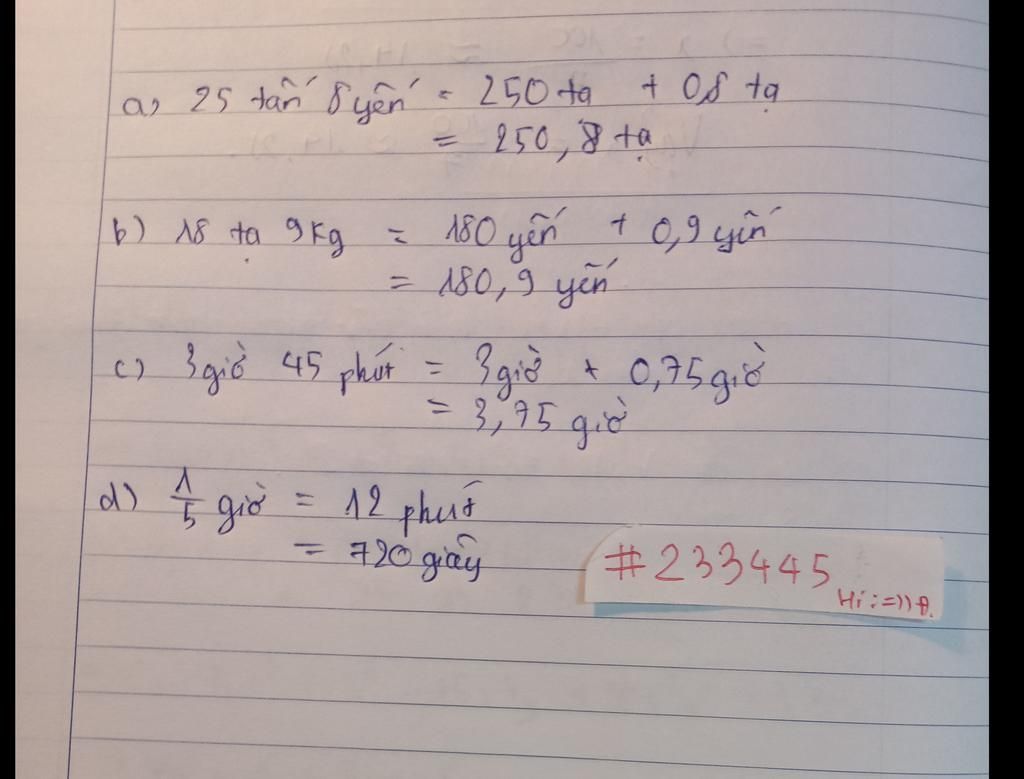 a) 25 tấn 8 yến = 250 tạ + 0,8 tạ
= 250,8 tạ
b) 18 tạ 9kg = 180 yến + 0,9 yến
= 180,9 yến
c) 3 giờ 45 phút = 3 giờ + 0,75 giờ
= 3,75 giờ
d) 1/5 giờ = 12 phút
= 720 giây
#233445
Hi :=))